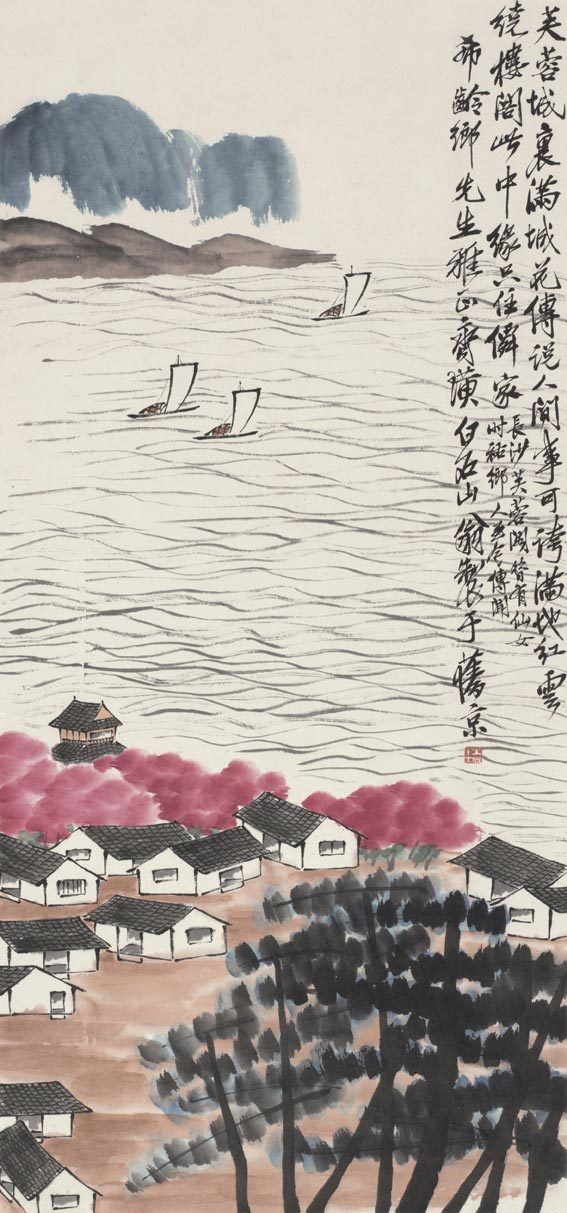 芙蓉城裏滿城花傳說人間事可誇滿地紅雲
繞樓閣此中緣只住僊家
長沙芙蓉閣昔有仙女
時祐鄉人至今傳聞
希齡鄉先生雅正齊璜白石山翁製于舊京